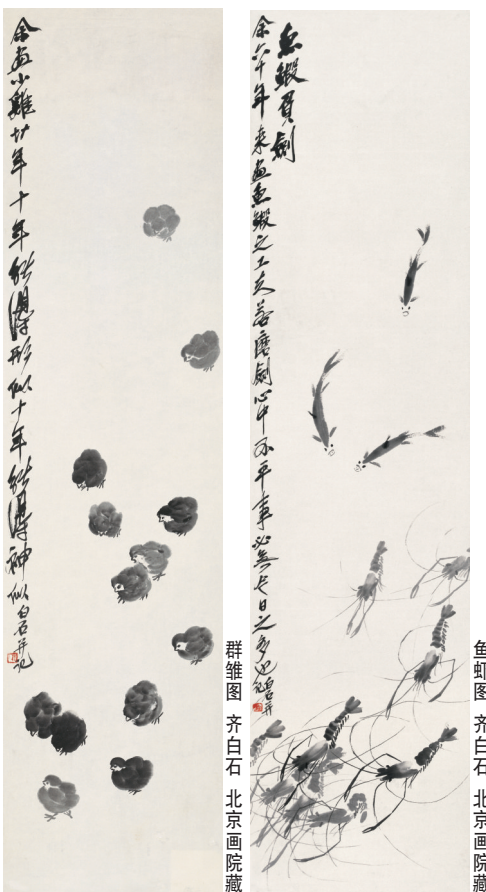 余畫小雞廿年十年能得形似十年能得神似白石并記
群雏图 齐白石 北京画院藏
魚鰕負劍
余六十年來畫魚鰕之工夫若磨劍心中不平事必無七日之多也白石并記
鱼虾图 齐白石 北京画院藏